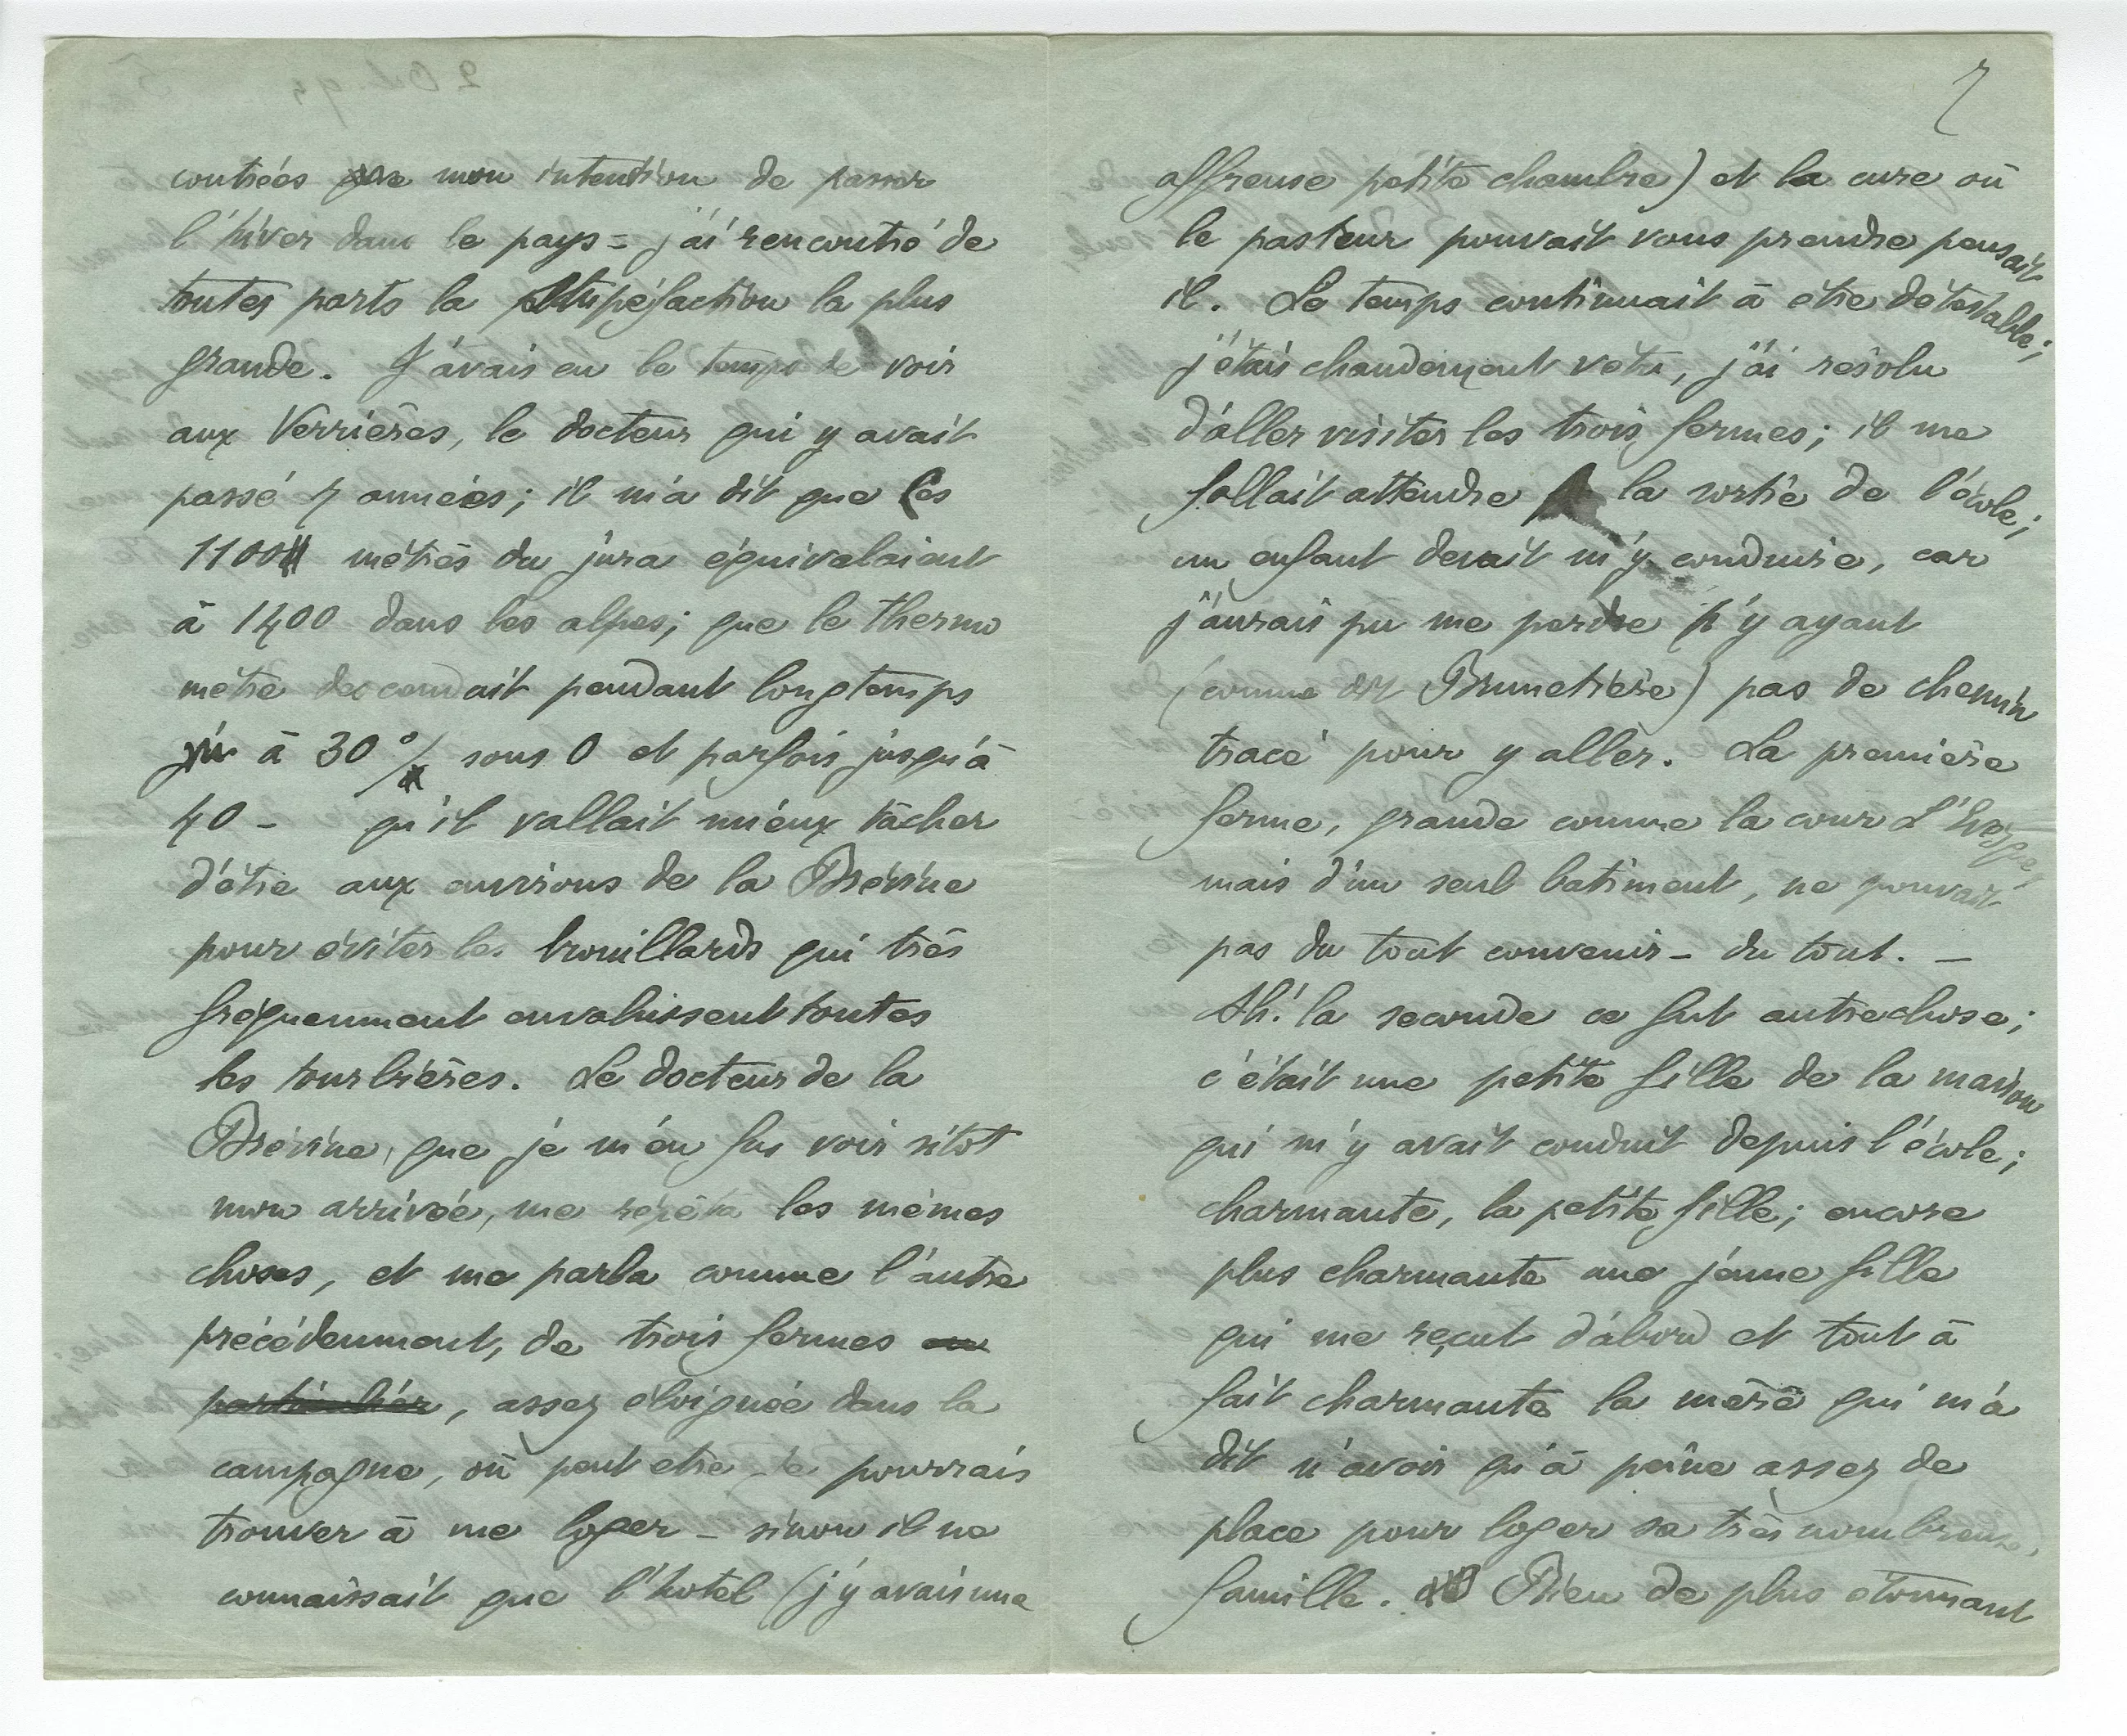 contrées que mon intention de passer
l'hiver dans le pays = j'ai rencontré de
toutes parts la stupéfaction la plus
grande. J'avais eu le temps de voir
aux Verrières, le docteur qui y avait
passé 7 années; il m'a dit que les
1100 mètres du jura équivalaient
à 1400 dans les alpes; que le thermo
mètre descendait pendant longtemps
à 30° sous 0 et parfois jusqu'à
40 - qu'il vallait mieux tâcher
d'être aux environs de la Brévine
pour éviter les brouillards qui très
fréquemment envahissent toutes
les tourbières. Le docteur de la
Brévine, que je m'en fus voir sitot
mon arrivée, me répéta les mêmes
choses, et me parla comme l'autre
précédemment, de trois fermes en
particulier, assez éloignée dans la
campagne, où peut etre je pourrais
trouver à me loger - sinon il ne
connaissait que l'hotel (j'y avais une
7
affreuse petite chambre) et la cure où
le pasteur pouvait vous prendre pensait
il. Le temps continuait à être détestable;
j'étais chaudement vêtu, j'ai résolu
d'aller visiter les trois fermes; il me
fallait attendre la sortie de l'école;
un enfant devait m'y conduire, car
j'aurais pu me perdre n'y ayant
(comme dit Brunetière) pas de chemin
tracé pour y aller. La première
ferme, grande comme la cour
mais d'un seul batiment, ne pouvait
pas du tout convenir - du tout. -
Ah! la seconde ce fut autre chose;
c'était une petite fille de la maison
qui m'y avait conduit depuis l'école;
charmante, la petite fille; encore
plus charmante une jeune fille
qui me reçut d'abord et tout à
fait charmante la mère qui m'a
dit n'avoir qu'à peine assez de
place pour loger sa très nombreuse
famille. Rien de plus étonnant